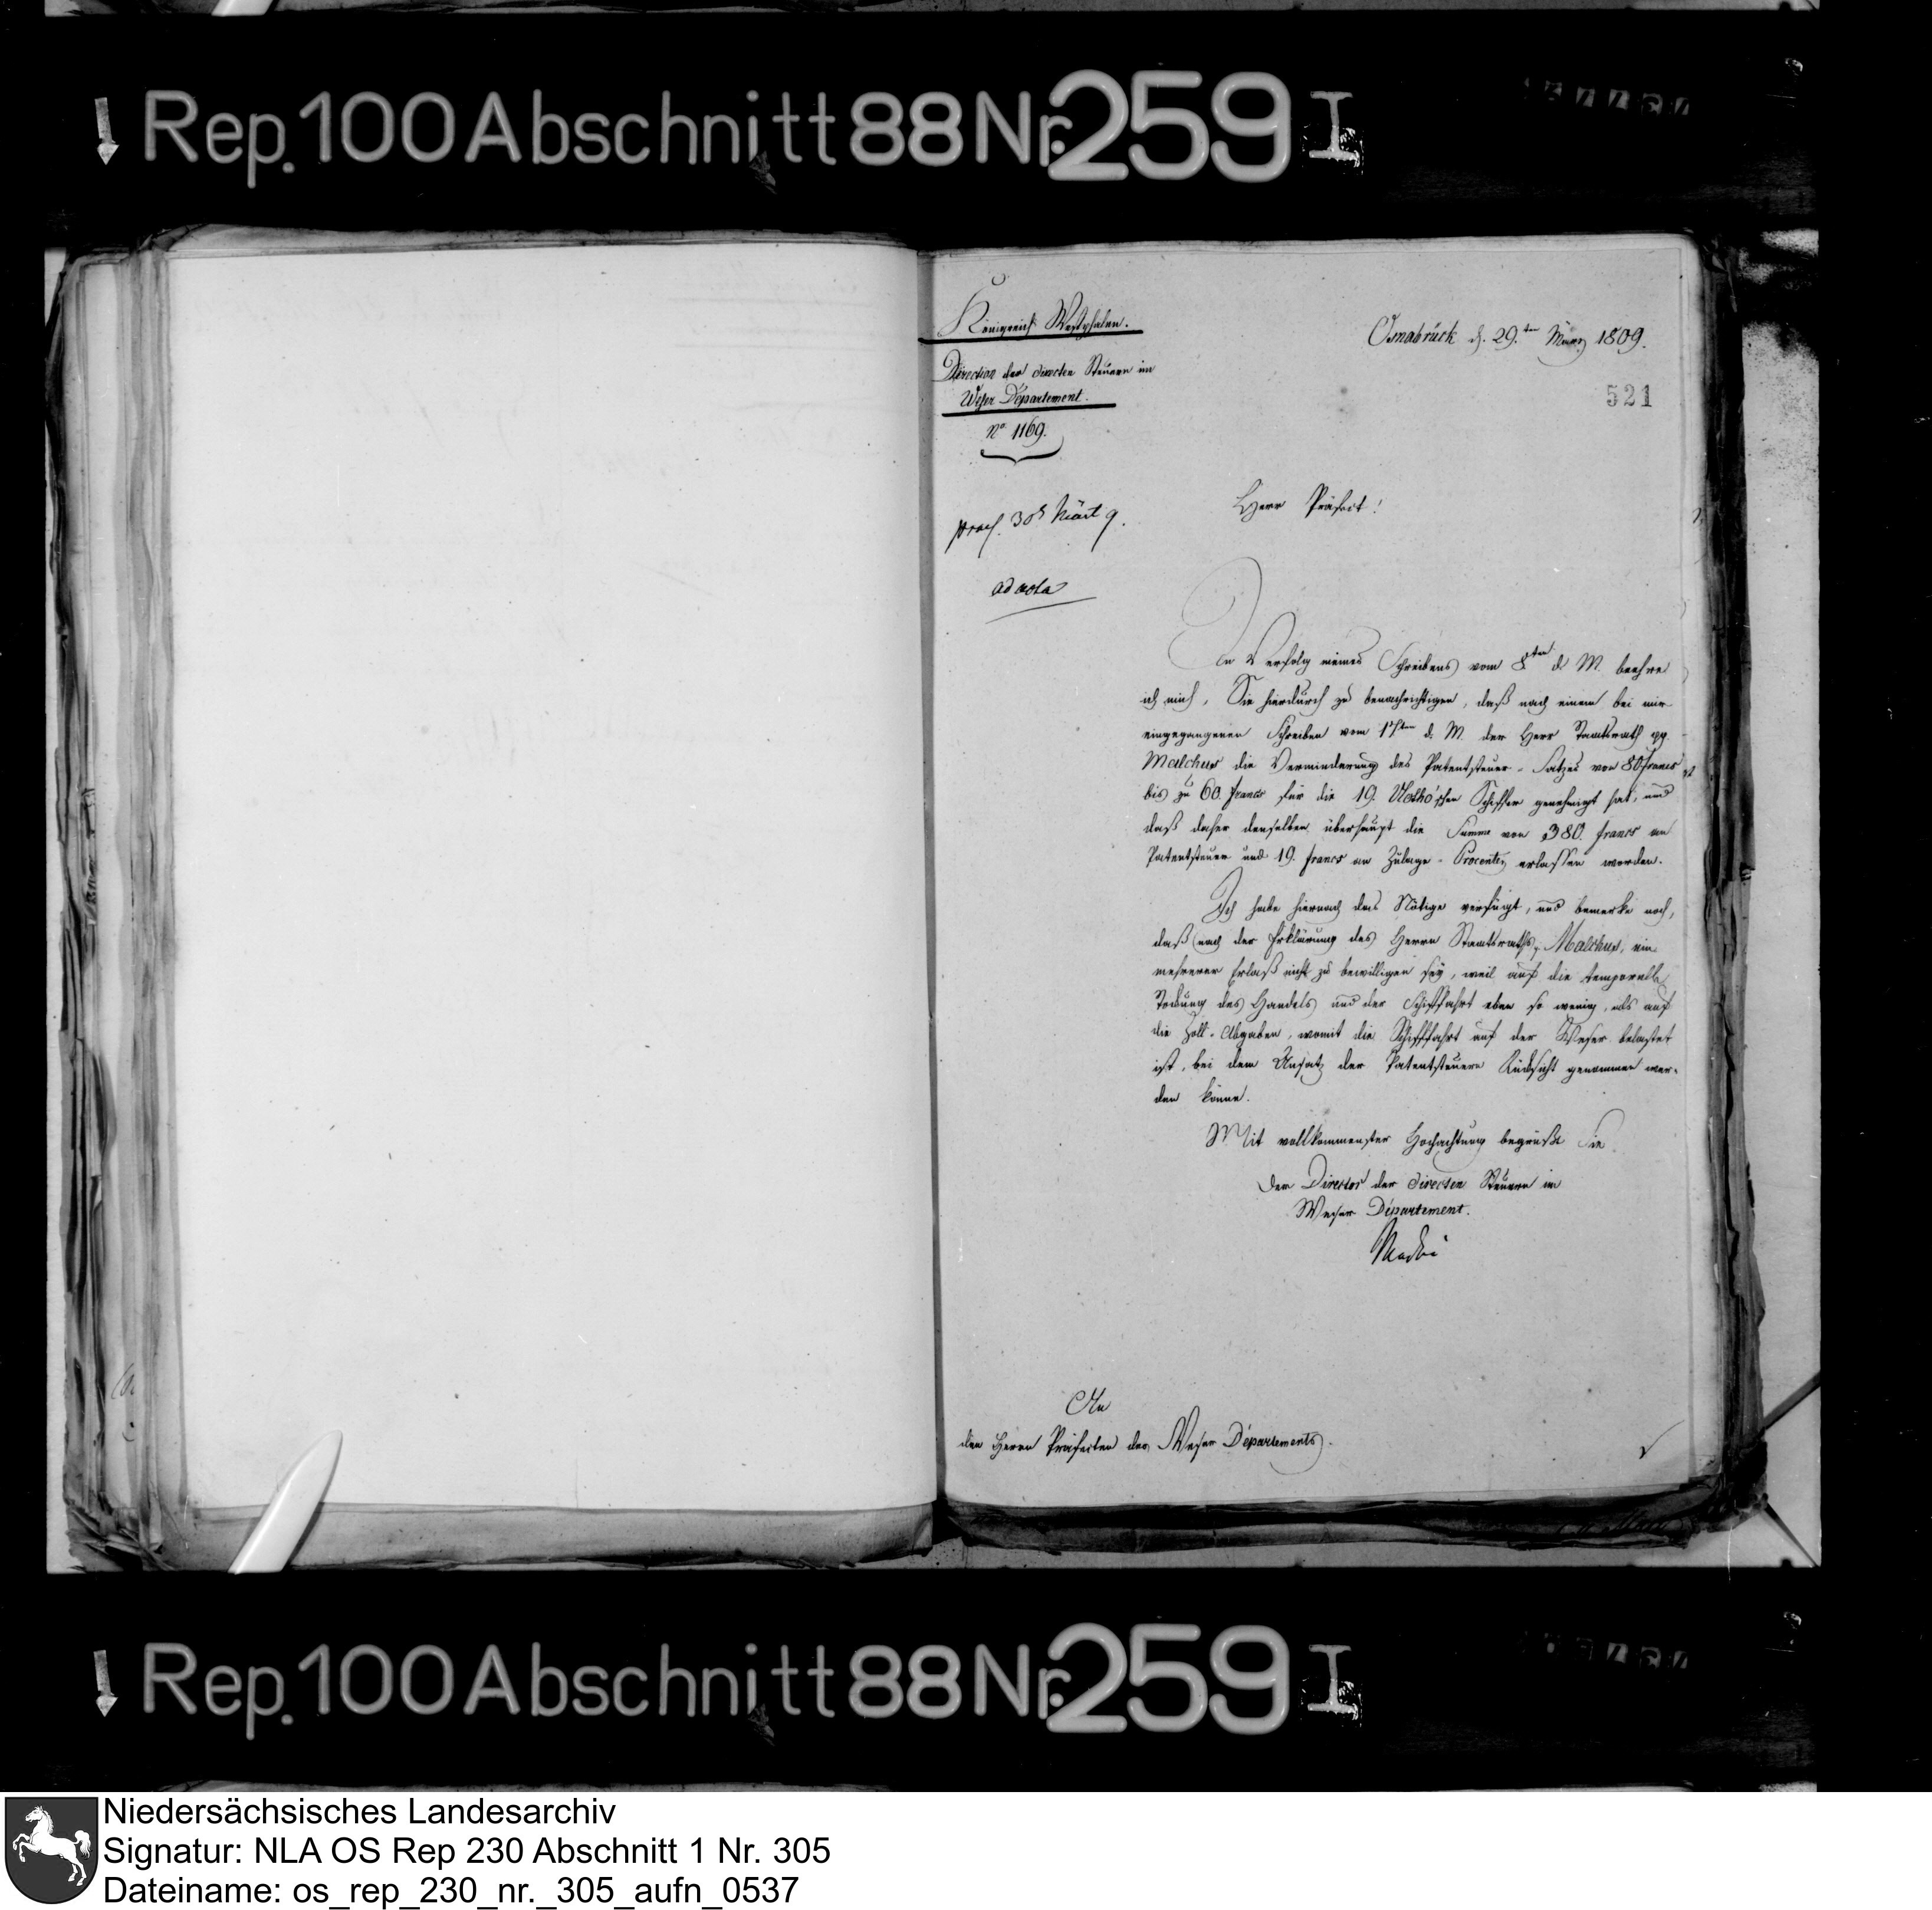 Rep. 100 Abschnitt 88 Nr. 259 I
Königreich Westphalen.
Direction der directen Steuern im
Weser Département.
No. 1169.
Osnabrück d. 29.ten März 1809.
521
praes. 30t Märt 9.
ad acta
Herr Präfect!
In Verfolg meines Schreibens vom 8ten d. M. beehre
ich mich, Sie hierdurch zu benachrichtigen, daß nach einem bei mir
eingegangenen Schreiben vom d. M. der Herr Staatsrath pp.
Malchus die Verminderung des Patentsteuer-Satzes von 80 francs
bis zu 60 francs für die 19. Vlotho'schen Schiffer genehmigt hat, und
daß daher denselben überhaupt die Summe von 380. francs an
Patentsteuer und 19. francs an Zulage-Procenten erlassen worden.
Ich habe hiernach das Nötige verfügt, und bemerke noch,
daß nach der Erklärung des Herrn Staatsraths Malchus, ein
mehrerer Erlaß nicht zu bewilligen sey, weil auf die temporelle
Stockung des Handels und der Schifffahrt eben so wenig, als auf
die Zoll-Abgaben, womit die Schifffahrt auf der Weser belastet
ist, bei dem Ansatz der Patentsteuern Rücksicht genommen wer-
den könne.
Mit vollkommenster Hochachtung begrüße Sie
Der Director der directen Steuern im
Weser Département.
An
den Herrn Präfecten des Weser Départements.
Rep. 100 Abschnitt 88 Nr. 259 I
Niedersächsisches Landesarchiv
Signatur: NLA OS Rep 230 Abschnitt 1 Nr. 305
Dateiname: os_rep_230_nr._305_aufn_0537